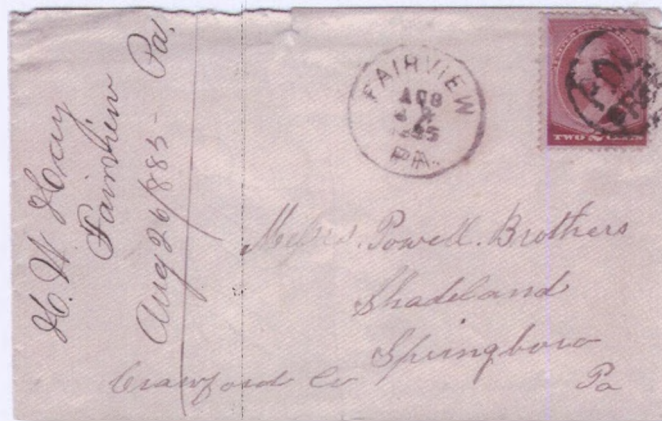 H. W. Hay
Fairview Pa.
Aug 26/885-
FAIRVIEW
AUG
PA.
TWO CENTS
Messrs. Powell. Brothers
Shadeland
Springboro
Crawford Co Pa